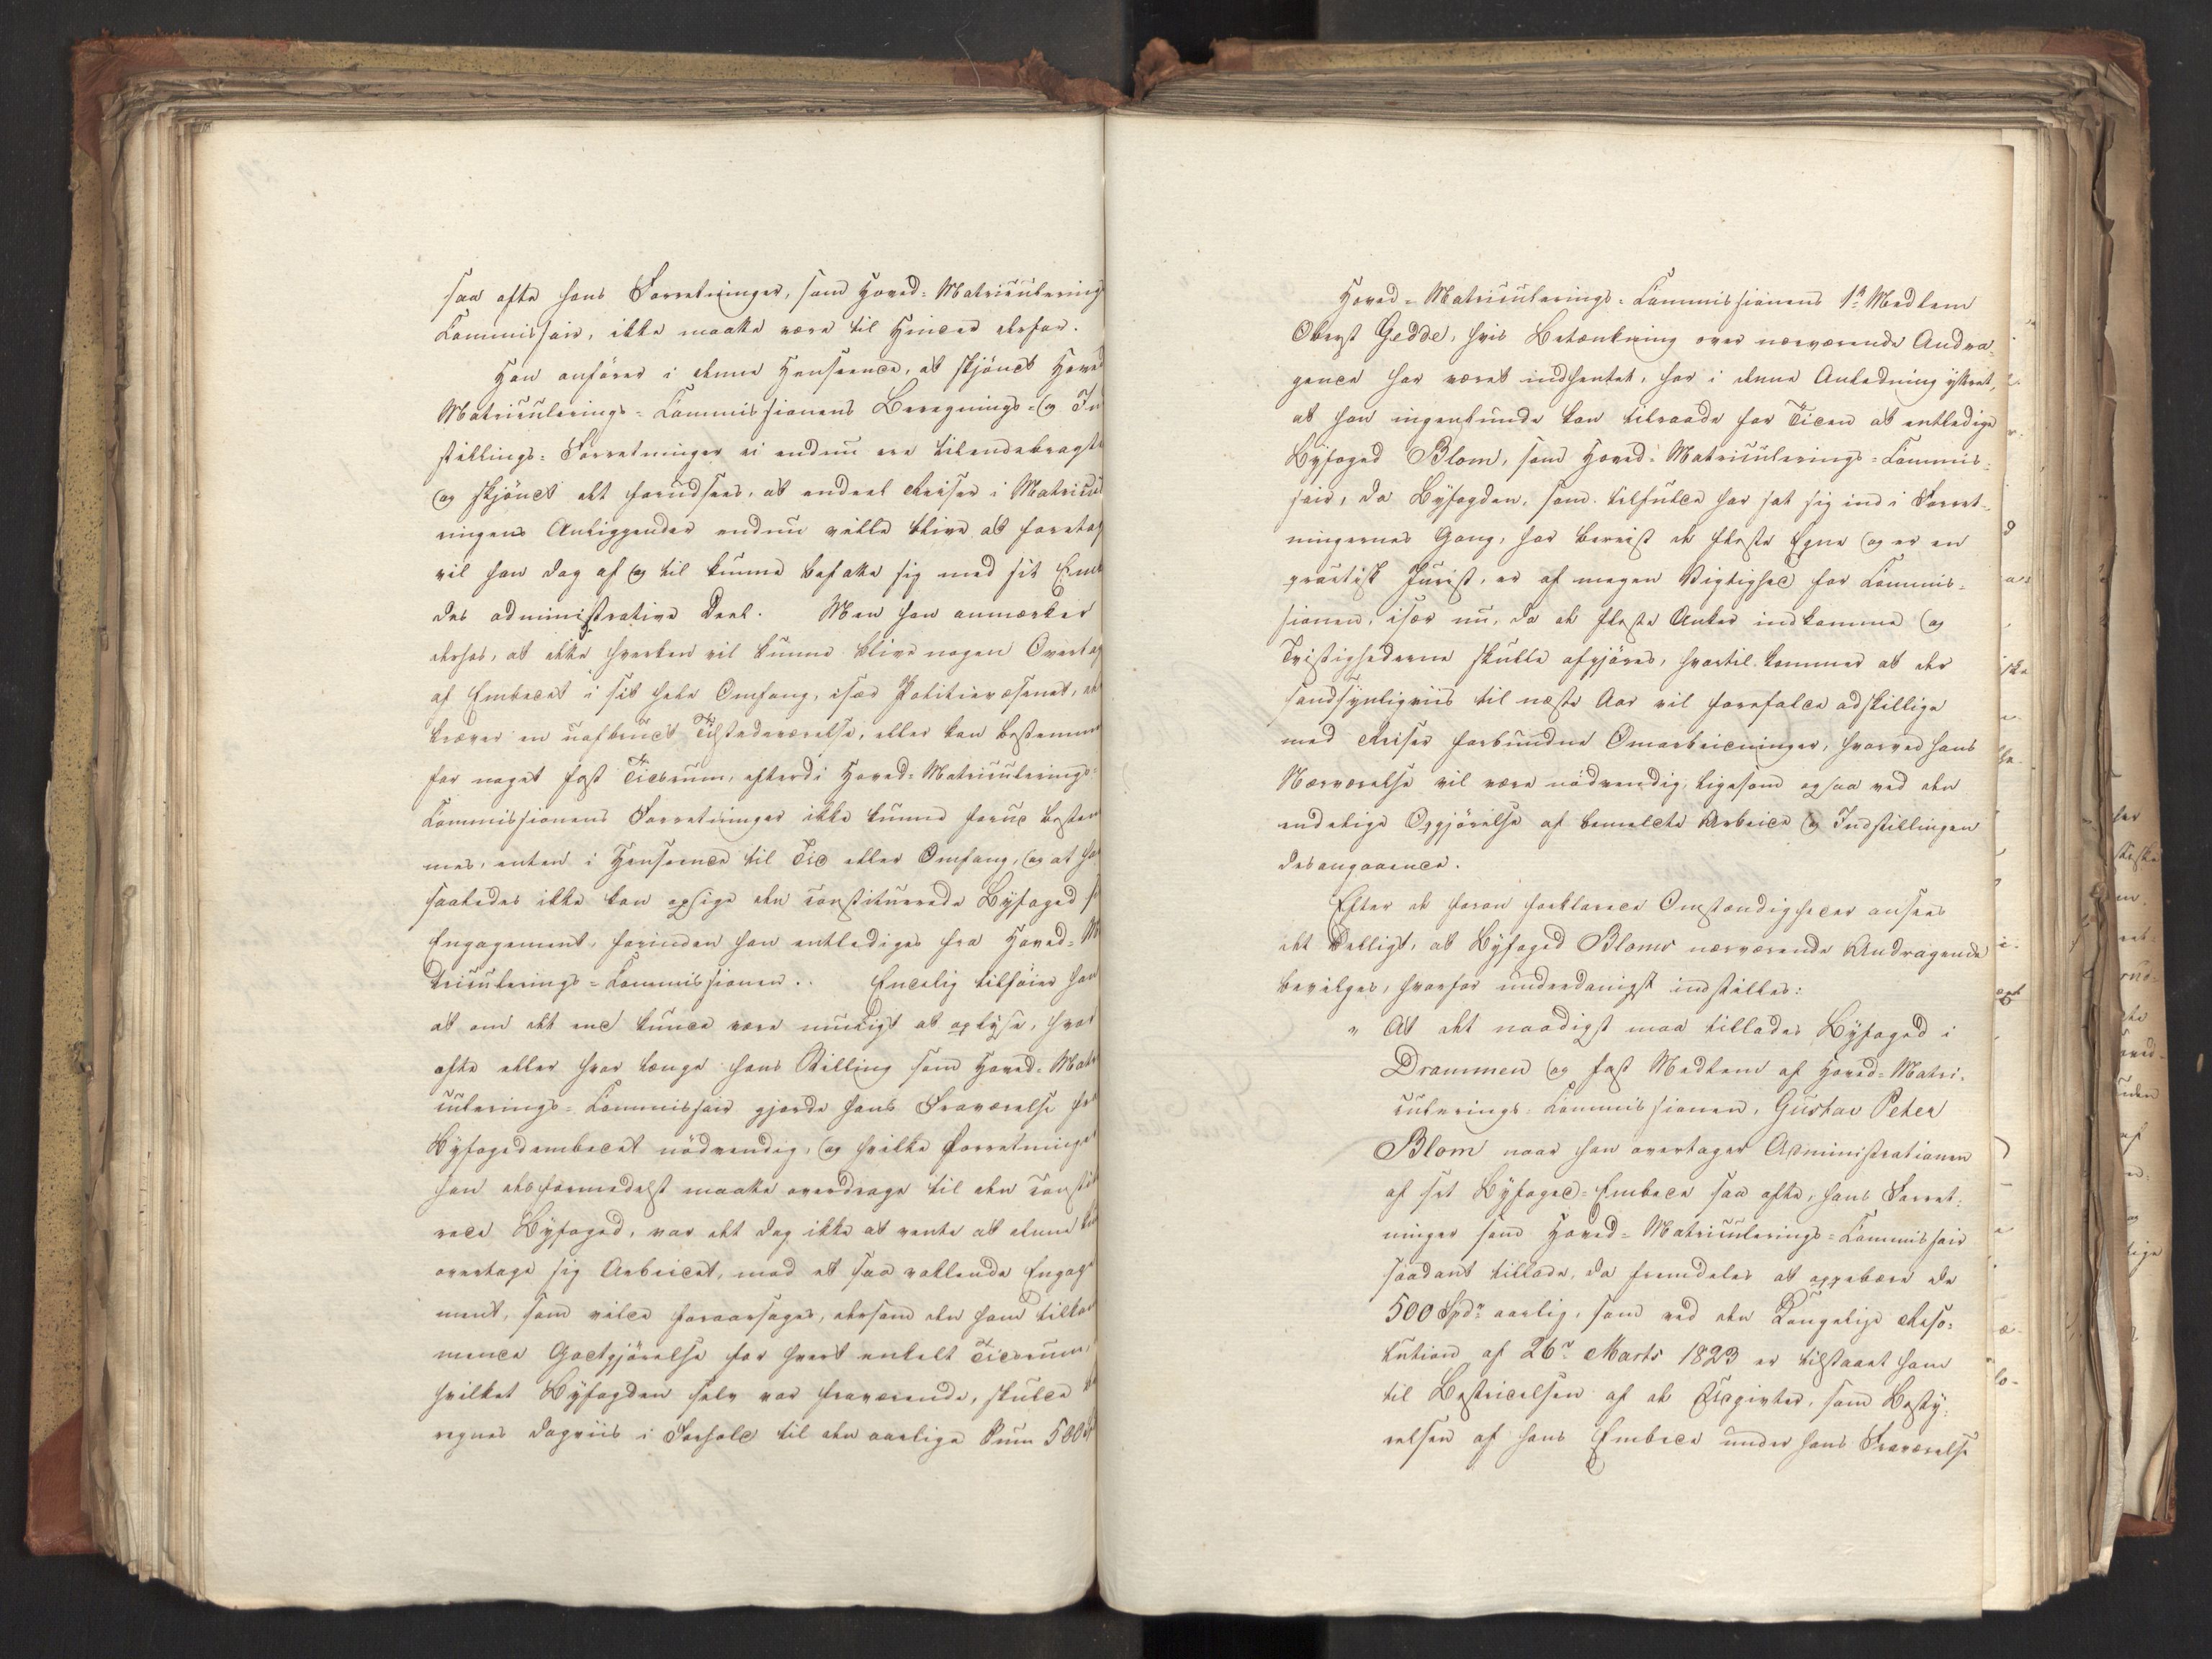 saa ofte hans Forretninger, som Hoved-Matriculerings
Commissair, ikke maatte være til Hinder derfor.
Han anfører i denne Henseende, at skjøndt Hoved
Matriculerings-Commissionens Beregnings- og Ind
stillings-Forretninger ei endnu ere tilendebragte
og skjøndt det forudsees, at endeel Reiser i Matricul
ringens Anliggender endnu ville blive at foretag
vil han dog af og til kunne befatte sig med sit Emb
des administrative Deel. Men han anmærker
derhos, at dette hverken vil kunne blive nogen Overtag
af Embedet i sit hele Omfang, især Politievæsenet, der
kræver en uafbrudt Tilstedeværelse, eller kan bestemmes
for noget fast Tidsrum, efterdi Hoved-Matriculerings-
Commissionens Forretninger ikke kunne forud bestem
mes, enten i Henseende til Tid eller Omfang, og at han
saaledes ikke kan opsige den constituerede Byfoged sit
Engagement, forinden han entlediges fra Hoved-Ma
triculerings-Commissionen. Endelig tilføier han
at om det end kunde være muligt at oplyse, hvor
ofte eller hvor længe hans Stilling som Hoved-Matr
iculerings-Commissair gjorde hans Fraværelse fra
Byfogedembedet nødvendig, og hvilke Forretninger
han desformedelst maatte overdrage til den constitu
rede Byfoged, var det dog ikke at vente at denne vil
overtage sig Arbeidet, med et saa vaklende Engage
ment, som vilde foraarsages, dersom den ham tilkom
mende Godtgjørelse for hvert enkelt Tidsrum,
hvilket Byfogden selv var fraværende, skulde be
regnes dagviis i Forhold til den aarlige Sum 500 Sp
Hoved-Matriculerings-Commissionens 1ste Medlem
Oberst Gedde, hvis Betænkning over nærværende Andra-
gende har været indhentet, har i denne Anledning yttret,
at han ingenlunde kan tilraade for Tiden at entledige
Byfoged Blom, som Hoved-Matriculerings-Commis-
sair, da Byfogden, som tilfulde har sat sig ind i Forret-
ningernes Gang, har bereist de fleste Egne og er en
practisk Jurist, er af megen Vigtighed for Commis-
sionen, især nu, da de fleste Anker indkomme og
Tvistighederne skulle afgjøres, hvortil kommer at der
sandsynligviis til næste Aar vil forefalde adskillige
med Reiser forbundne Omarbeidninger, hvorved hans
Nærværelse vil være nødvendig, ligesom ogsaa ved den
endelige Opgjørelse af bemeldte Arbeide og Indstillingen
desangaaende.
Efter de foran forklarede Omstændigheder ansees
det billigt, at Byfoged Bloms nærværende Andragende
bevilges, hvorfor underdanigst indstilles:
" At det naadigst maa tillades Byfoged i
Drammen og fast Medlem af Hoved-Matri-
culerings-Commissionen, Gustav Peter
Blom naar han overtager Administrationen
af sit Byfoged-Embede saa ofte, hans Forret-
ninger som Hoved-Matriculerings-Commissair
saadant tillade, da fremdeles at oppebære de
500 Spdr aarlig, som ved den Kongelige Reso-
lution af 26r Marts 1823 er tilstaaet ham
til Bestridelsen af de Udgivter, som Besty-
relsen af hans Embede under hans Fraværelse